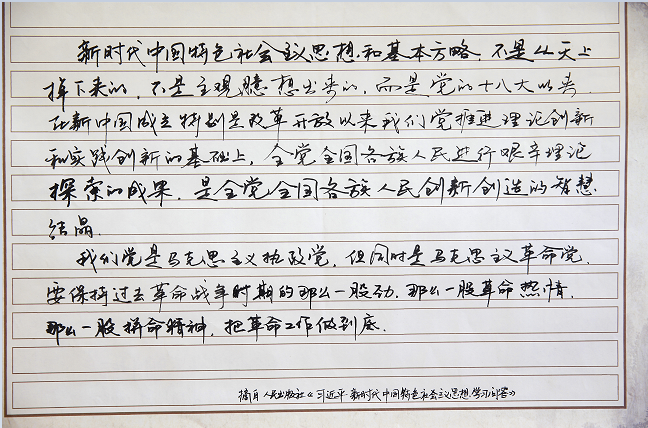 新时代中国特色社会主义思想和基本方略，不是从天上
掉下来的，不是主观臆想出来的，而是党的十八大以来，
在新中国成立特别是改革开放以来我们党推进理论创新
和实践创新的基础上，全党全国各族人民进行艰辛理论
探索的成果，是全党全国各族人民创新创造的智慧
结晶。
我们党是马克思主义执政党，但同时是马克思主义革命党，
要保持过去革命战争时期的那么一股劲，那么一股革命热情，
那么一股拼命精神，把革命工作做到底。
摘自人民出版社《习近平新时代中国特色社会主义思想学习问答》